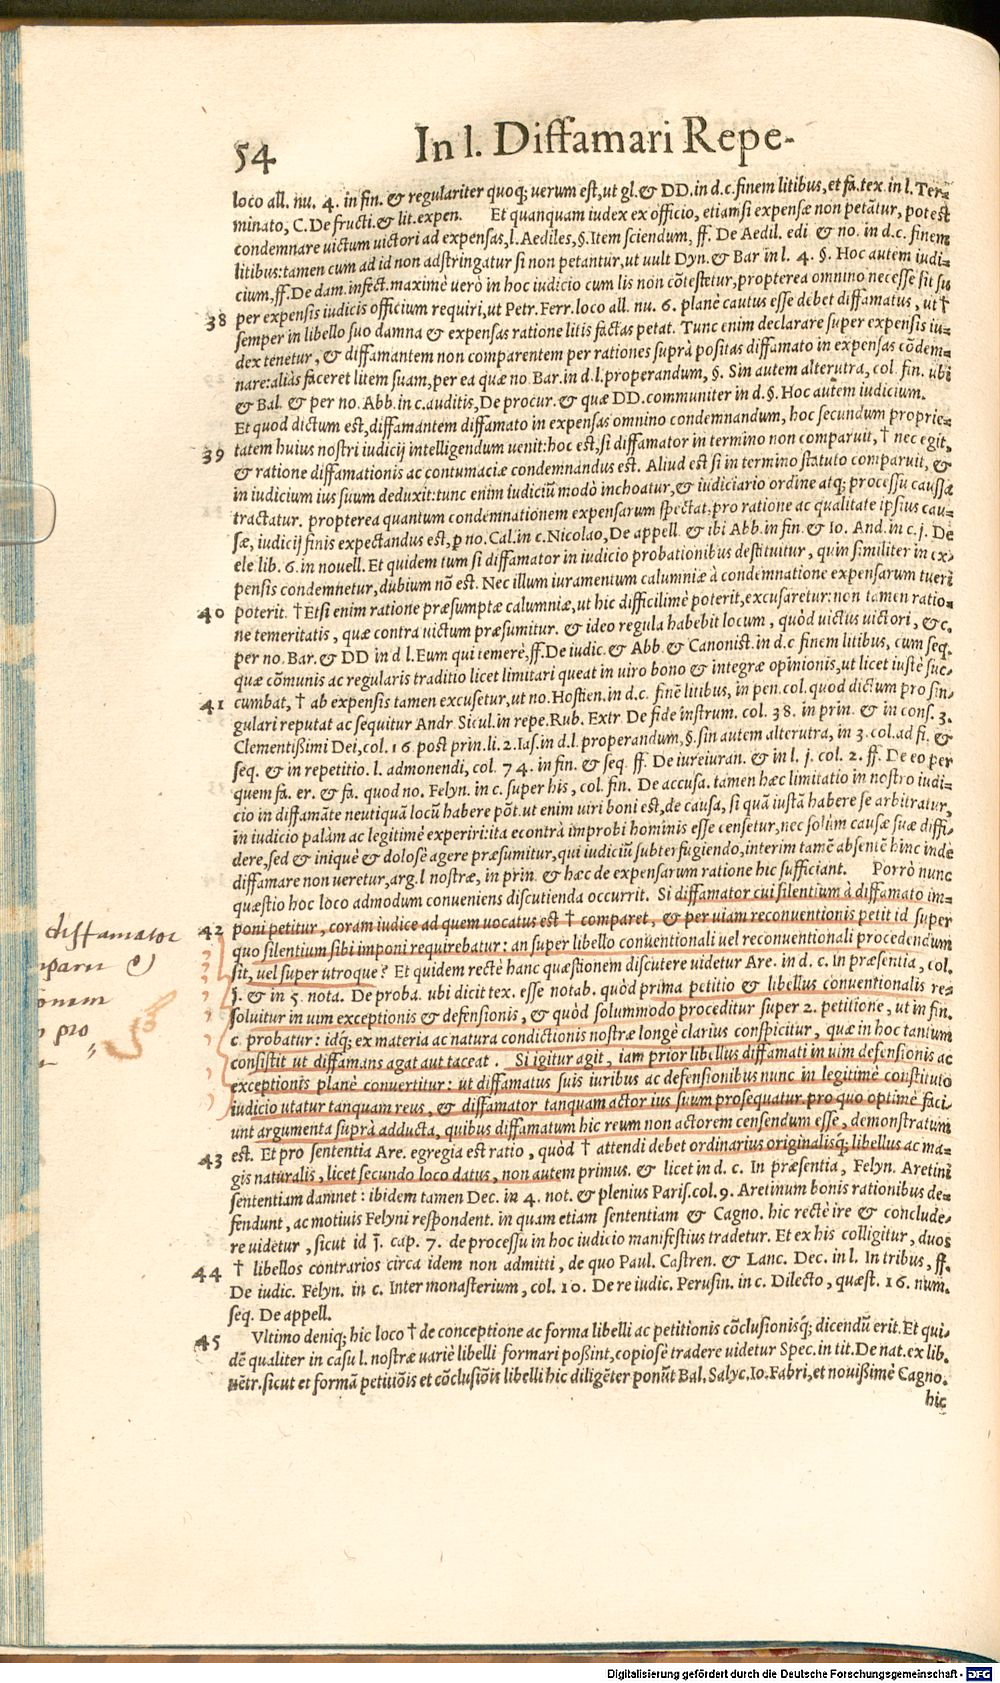 54 In l. Diffamari Repe-
loco all. nu. 4. in fin. & regulariter quoq; uerum est, ut gl. & DD. in d. c. finem litibus, et fa. tex. in l. Ter-
minato, C. De fructi. & lit. expen. Et quanquam iudex ex officio, etiamsi expensæ non petãtur, potest
condemnare uictum uictori ad expensas, l. Aediles, §. Item sciendum, ff. De Aedil. edi & no. in d. c. finem
litibus: tamen cum ad id non adstringatur si non petantur, ut uult Dyn. & Bar in l. 4. §. Hoc autem iudi-
cium, ff. De dam. infect. maximè uerò in hoc iudicio cum lis non cõtestetur, propterea omnino necesse sit su
per expensis iudicis officium requiri, ut Petr. Ferr. loco all. nu. 6. planè cautus esse debet diffamatus, ut †
38 semper in libello suo damna & expensas ratione litis factas petat. Tunc enim declarare super expensis iu-
dex tenetur, & diffamantem non comparentem per rationes suprà positas diffamato in expensas cõdem-
nare: aliàs faceret litem suam, per ea quæ no. Bar. in d. l. properandum, §. Sin autem alterutra, col. fin. ubi
& Bal. & per no. Abb. in c. auditis, De procur. & quæ DD. communiter in d. §. Hoc autem iudicium.
Et quod dictum est, diffamantem diffamato in expensas omnino condemnandum, hoc secundum proprie-
39 tatem huius nostri iudicij intelligendum uenit: hoc est, si diffamator in termino non comparuit, † nec egit,
& ratione diffamationis ac contumaciæ condemnandus est. Aliud est si in termino statuto comparuit, &
in iudicium ius suum deduxit: tunc enim iudiciũ modò inchoatur, & iudiciario ordine atq; processu caussa
tractatur. propterea quantum condemnationem expensarum spectat, pro ratione ac qualitate ipsius cau-
sæ, iudicij finis expectandus est, p no. Cal. in c. Nicolao, De appell. & ibi Abb. in fin. & Io. And. in c. j. De
ele lib. 6. in nouell. Et quidem tum si diffamator in iudicio probationibus destituitur, quin similiter in ex-
pensis condemnetur, dubium nõ est. Nec illum iuramentum calumniæ à condemnatione expensarum tueri
40 poterit. † Etsi enim ratione præsumptæ calumniæ, ut hic difficilimè poterit, excusaretur: non tamen ratio-
ne temeritatis, quæ contra uictum præsumitur. & ideo regula habebit locum, quòd uictus uictori, &c.
per no. Bar. & DD in d l. Eum qui temerè, ff. De iudic. & Abb. & Canonist. in d. c finem litibus, cum seq.
quæ cõmunis ac regularis traditio licet limitari queat in uiro bono & integræ opinionis, ut licet iustè suc-
41 cumbat, † ab expensis tamen excusetur, ut no. Hostien. in d. c. finẽ litibus, in pen. col. quod dictum pro sin-
gulari reputat ac sequitur Andr. Sicul. in repe. Rub. Extr De fide instrum. col. 38. in prin. & in cons. 3.
Clementißimi Dei, col. 16 post prin. li. 2. Ias. in d. l. properandum, §. sin autem alterutra, in 3. col. ad fi. &
seq. & in repetitio. l. admonendi, col. 74. in fin. & seq. ff. De iureiuran. & in l. j. col. 2. ff. De eo per
quem fa. er. & fa. quod no. Felyn. in c. super his, col. fin. De accusa. tamen hæc limitatio in nostro iudi-
cio in diffamãte neutiquã locũ habere põt. ut enim uiri boni est, de causa, si quã iustã habere se arbitratur,
in iudicio palàm ac legitimè experiri: ita econtrà improbi hominis esse censetur, nec solùm causæ suæ diffi-
dere, sed & iniquè & dolosè agere præsumitur, qui iudiciũ subterfugiendo, interim tamẽ absentẽ hinc inde
diffamare non ueretur, arg. l nostræ, in prin. & hæc de expensarum ratione hic sufficiant. Porrò nunc
quæstio hoc loco admodum conueniens discutienda occurrit. Si diffamator cui silentium à diffamato im-
42 poni petitur, coram iudice ad quem uocatus est † comparet, & per uiam reconuentionis petit id super
quo silentium sibi imponi requirebatur: an super libello conuentionali uel reconuentionali procedendum
sit, uel super utroque? Et quidem rectè hanc quæstionem discutere uidetur Are. in d. c. In præsentia, col.
j. & in 5. nota. De proba. ubi dicit tex. esse notab. quòd prima petitio & libellus conuentionalis re-
soluitur in uim exceptionis & defensionis, & quòd solummodo proceditur super 2. petitione, ut in fin.
c. probatur: idq; ex materia ac natura condictionis nostræ longè clarius conspicitur, quæ in hoc tantum
consistit ut diffamans agat aut taceat. Si igitur agit, iam prior libellus diffamati in uim defensionis ac
exceptionis planè conuertitur: ut diffamatus suis iuribus ac defensionibus nunc in legitimè constituto
iudicio utatur tanquam reus, & diffamator tanquam actor ius suum prosequatur. pro quo optimè faci-
unt argumenta suprà adducta, quibus diffamatum hic reum non actorem censendum esse, demonstratum
43 est. Et pro sententia Are. egregia est ratio, quòd † attendi debet ordinarius originalisq; libellus ac ma-
gis naturalis, licet secundo loco datus, non autem primus. & licet in d. c. In præsentia, Felyn. Aretini
sententiam damnet: ibidem tamen Dec. in 4. not. & plenius Paris. col. 9. Aretinum bonis rationibus de-
fendunt, ac motiuis Felyni respondent. in quam etiam sententiam & Cagno. hic rectè ire & conclude-
re uidetur, sicut id j. cap. 7. de processu in hoc iudicio manifestius tradetur. Et ex his colligitur, duos
44 † libellos contrarios circa idem non admitti, de quo Paul. Castren. & Lanc. Dec. in l. In tribus, ff.
De iudic. Felyn. in c. Inter monasterium, col. 10. De re iudic. Perusin. in c. Dilecto, quæst. 16. num.
seq. De appell.
45 Vltimo deniq; hic loco † de conceptione ac forma libelli ac petitionis cõclusionisq; dicendũ erit. Et qui-
dẽ qualiter in casu l. nostræ uariè libelli formari poßint, copiosè tradere uidetur Spec. in tit. De nat. ex lib.
uẽtr. sicut et formã petitiõis et cõclusiõis libelli hic diligẽter ponũt Bal. Salyc. Io. Fabri, et nouißimè Cagno.
hic
diffamator
onem
pro
Digitalisierung gefördert durch die Deutsche Forschungsgemeinschaft - DFG